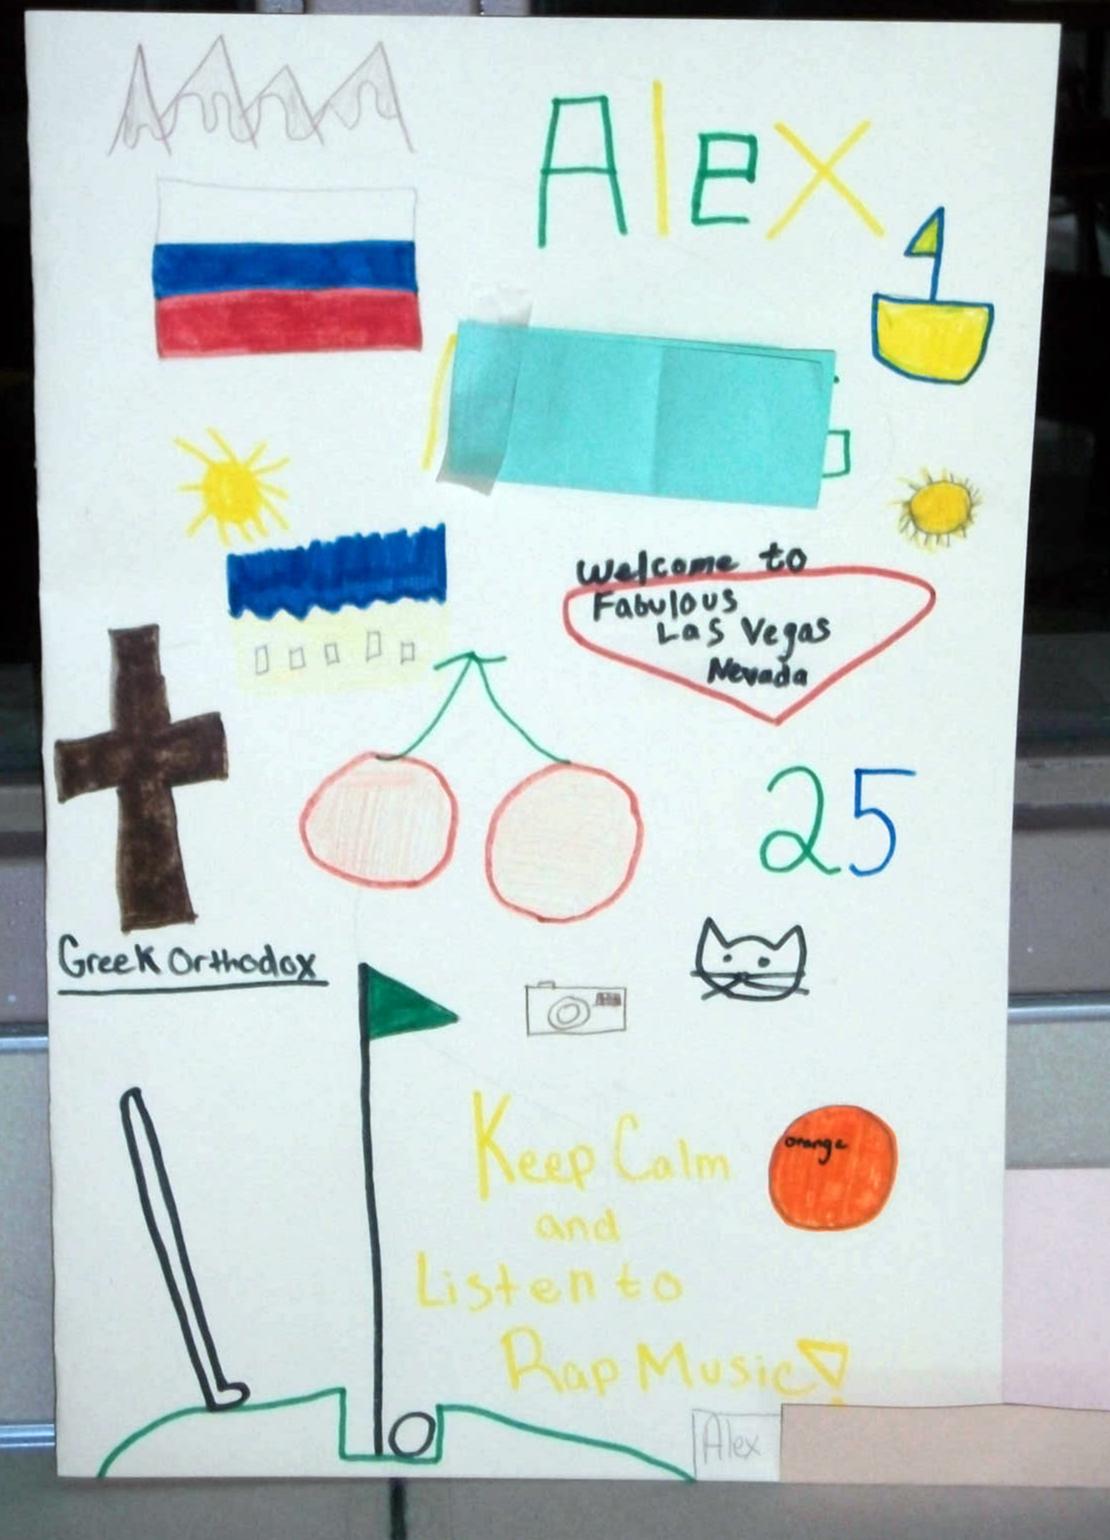 Alex
Welcome to
Fabulous
Las Vegas
Nevada
25
Greek Orthodox
orange
Keep Calm
and
Listen to
Rap Music!
Alex